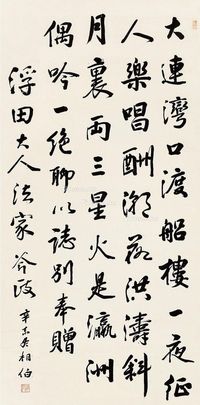 大連灣口渡船樓一夜征
人樂唱酬潮落洪濤斜
月裏兩三星火是瀛洲
偶吟一絕聊以誌別奉贈
浮田大人法家斧政
辛未吳相伯